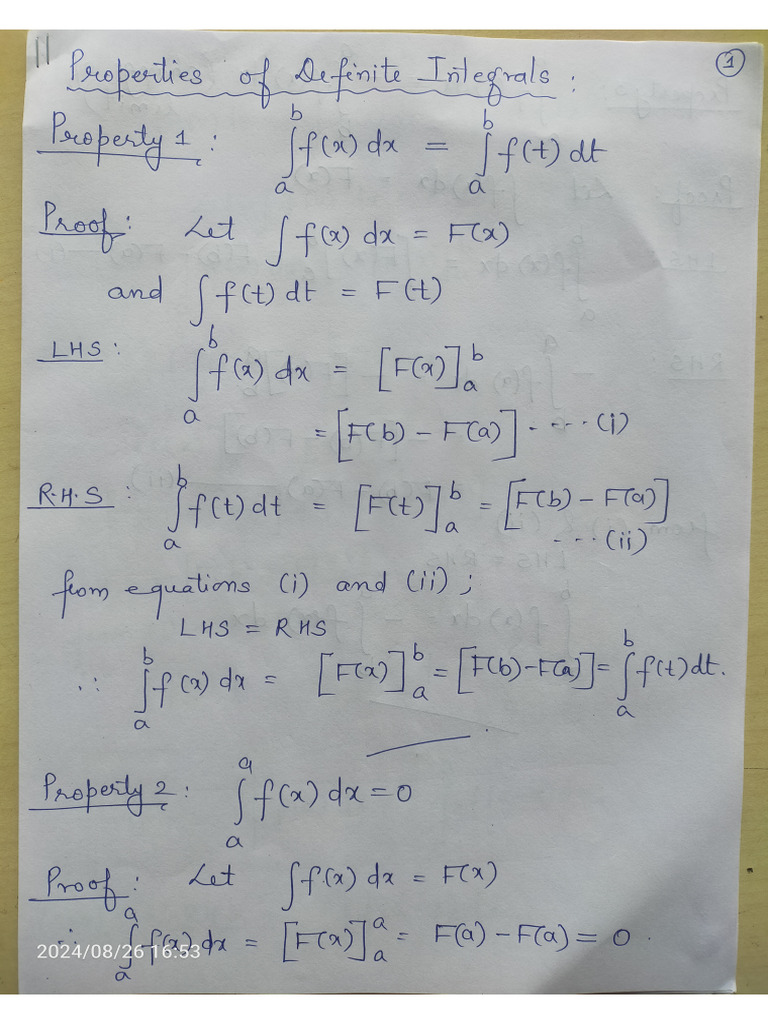 ①
Properties of Definite Integrals :
Property 1 : ∫_a^b f(x) dx = ∫_a^b f(t) dt
Proof : Let ∫ f(x) dx = F(x)
and ∫ f(t) dt = F(t)
LHS : ∫_a^b f(x) dx = [F(x)]_a^b
= [F(b) - F(a)] ---- (i)
R.H.S : ∫_a^b f(t) dt = [F(t)]_a^b = [F(b) - F(a)]
--- (ii)
from equations (i) and (ii) ;
LHS = RHS
∴ ∫_a^b f(x) dx = [F(x)]_a^b = [F(b) - F(a)] = ∫_a^b f(t) dt.
Property 2 : ∫_a^a f(x) dx = 0
Proof : Let ∫ f(x) dx = F(x)
∴ ∫_a^a f(x) dx = [F(x)]_a^a = F(a) - F(a) = 0 .
2024/08/26 16:53